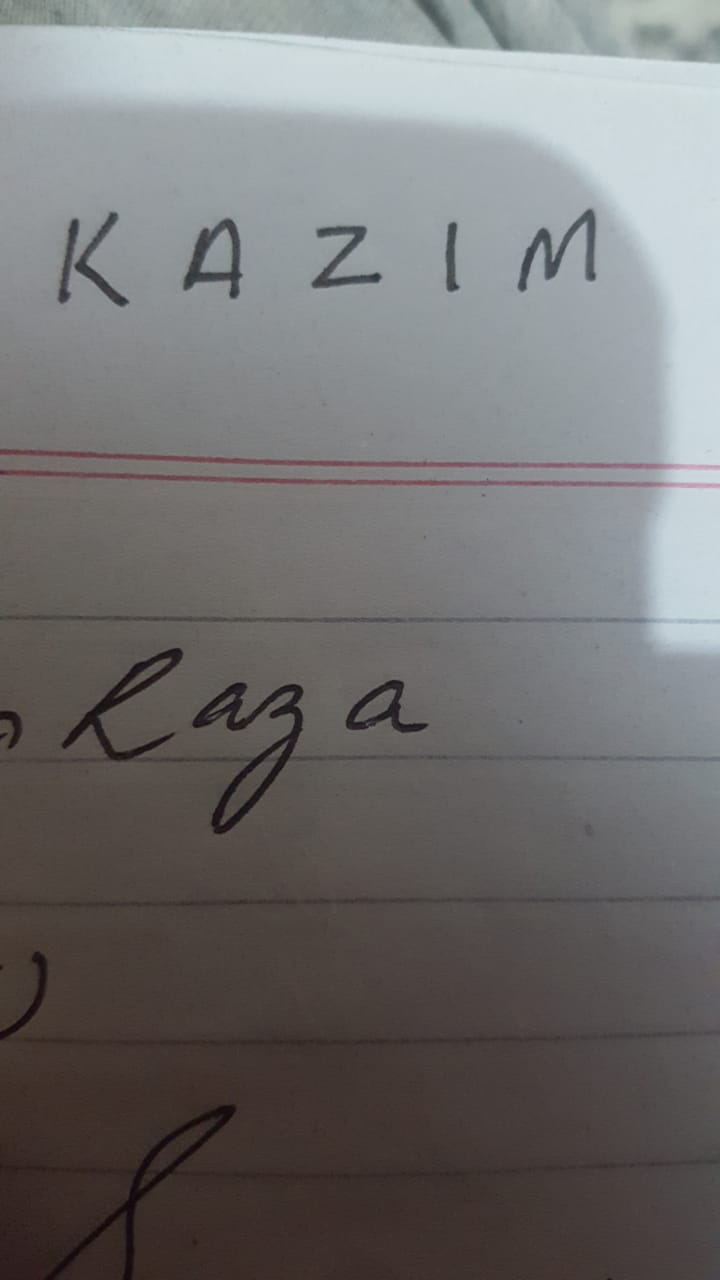 KAZIM
Raza